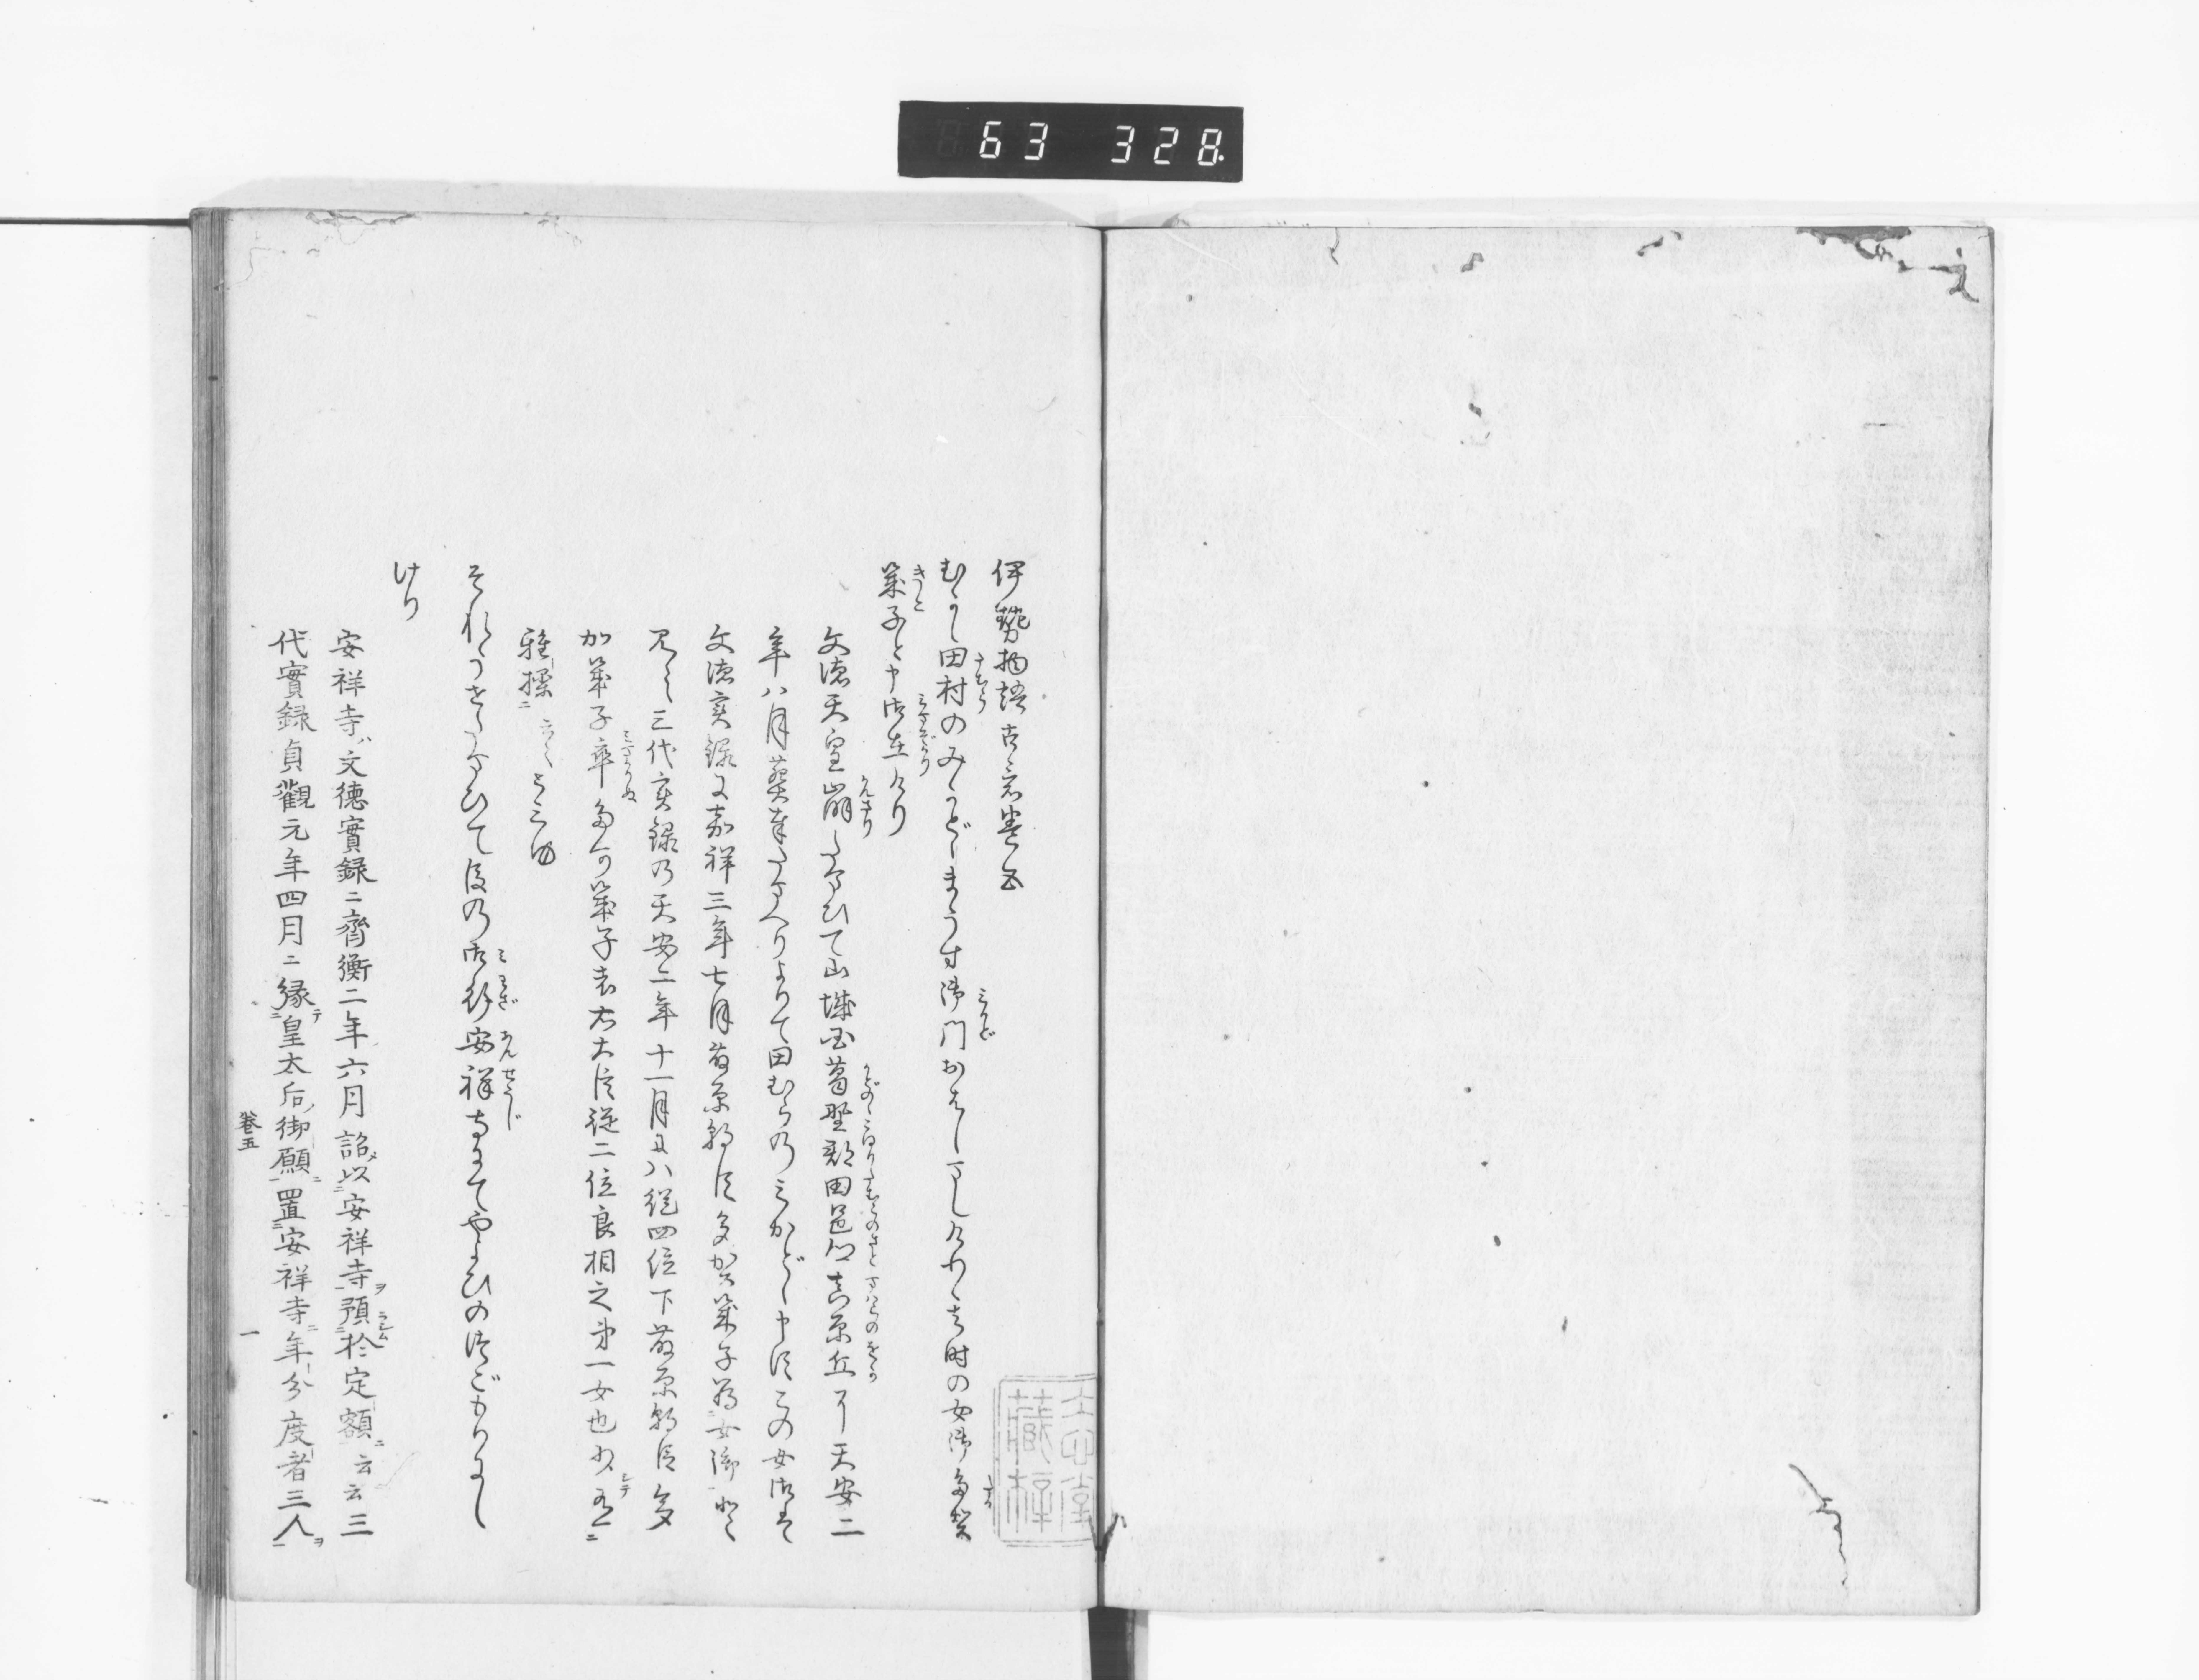 63 328.
伊勢物語古意巻五
むかし田村のみかどゝまうす御門おはしましけりそのときの女御多賀
幾子と申御在けり
文徳天皇崩たまひて山城国葛野郡田邑郷真原丘に天安二
年八月葬奉たまへりよりて田むらのみかどゝ申にこの女御は
文徳実録に嘉祥三年七月藤原朝臣多賀幾子為女御と
見え三代実録の天安二年十一月には従四位下藤原朝臣多
加幾子卒多可幾子者右大臣従二位良相之第一女也少有
雅操ニ云々とみゆ
それうせたまひて後の御わざ安祥寺にてやよひのつごもりにし
けり
安祥寺ハ文徳實録ニ齊衡二年六月詔以安祥寺預於定額云云三
代實録貞觀元年四月ニ縁皇太后御願置安祥寺年分度者三人
巻五
一